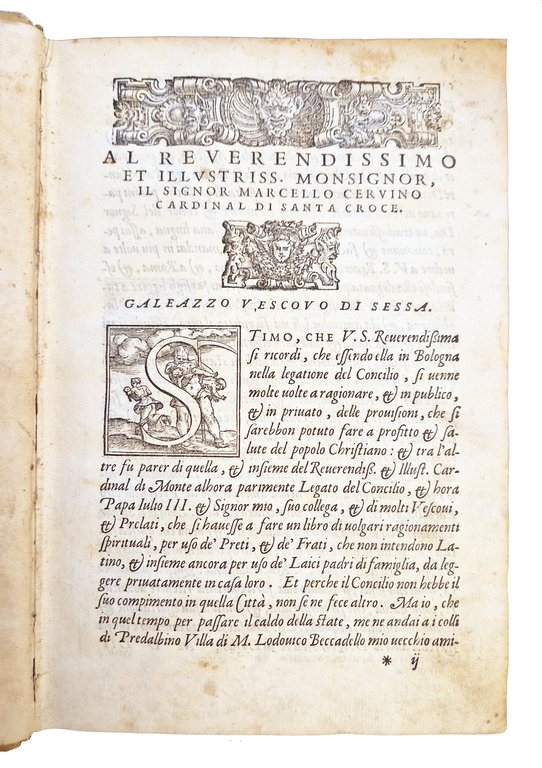 AL REVERENDISSIMO
ET ILLVSTRISS. MONSIGNOR,
IL SIGNOR MARCELLO CERVINO
CARDINAL DI SANTA CROCE.
GALEAZZO VESCOVO DI SESSA.
STIMO, CHE V. S. Reuerendißima
si ricordi, che essendo ella in Bologna
nella legatione del Concilio, si uenne
molte uolte a ragionare, & in publico,
& in priuato, delle prouisioni, che si
sarebbon potuto fare a profitto & sa-
lute del popolo Christiano: & tra l'al-
tre fu parer di quella, & insieme del Reuerendiß. & Illust. Car-
dinal di Monte alhora parimente Legato del Concilio, & hora
Papa Iulio III. & Signor mio, suo collega, & di molti Vescoui,
& Prelati, che si hauesse a fare un libro di uolgari ragionamenti
spirituali, per uso de' Preti, & de' Frati, che non intendono La-
tino, & insieme ancora per uso de' Laici padri di famiglia, da leg-
gere priuatamente in casa loro. Et perche il Concilio non hebbe il
suo compimento in quella Città, non se ne fece altro. Ma io, che
in quel tempo per passare il caldo della state, me ne andai a i colli
di Predalbino Villa di M. Lodouico Beccadello mio uecchio ami-
* ij